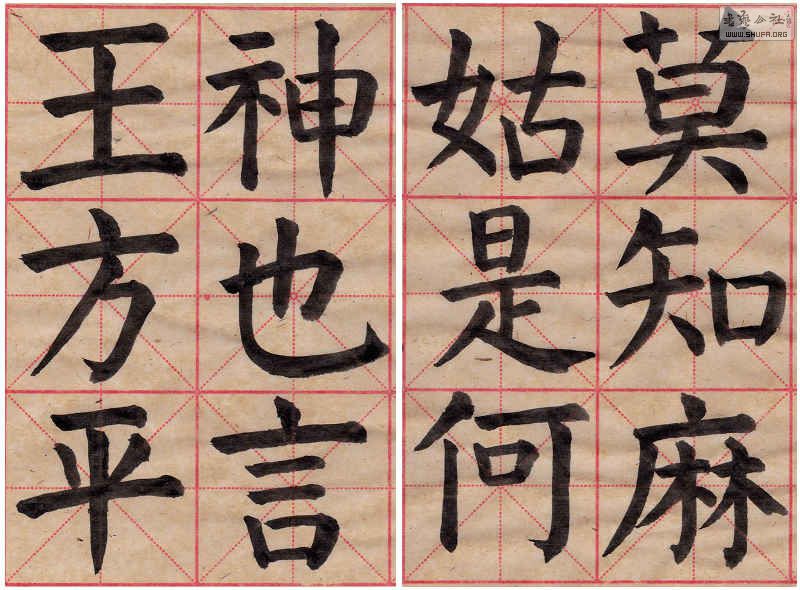 莫知麻
姑是何
神也言
王方平
書藝公社
WWW.SHUFA.ORG